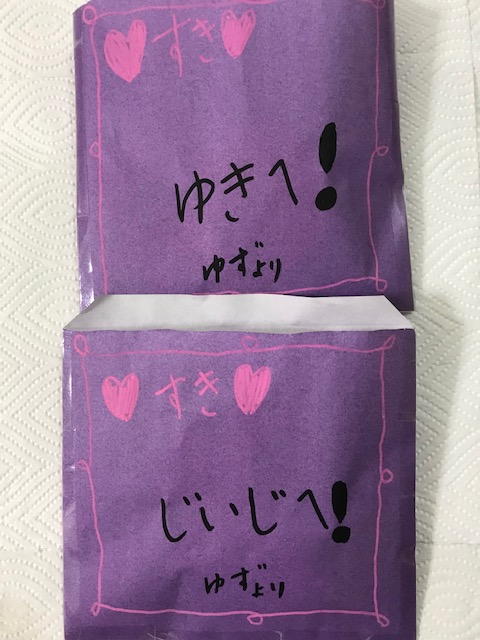 すき
ゆきへ!
ゆずより
すき
じいじへ!
ゆずより